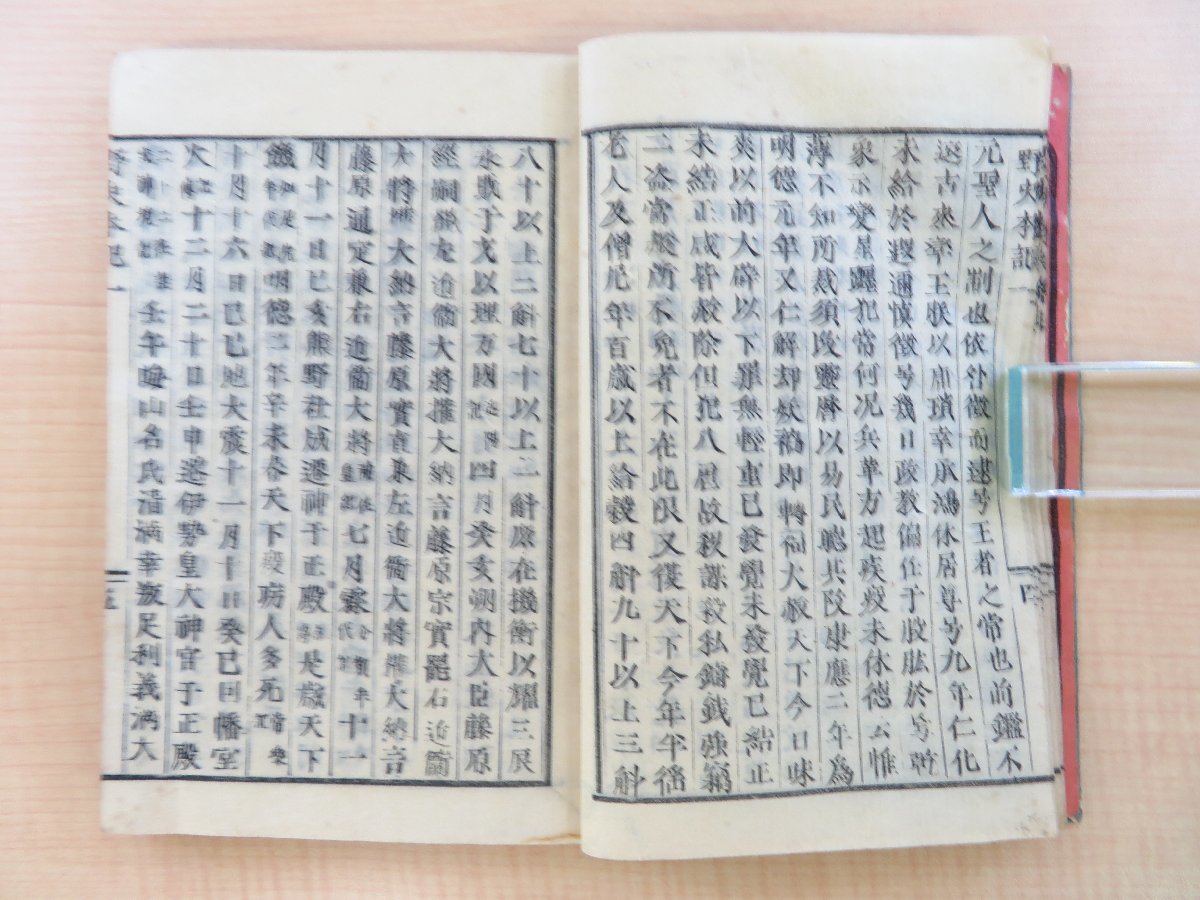 野史本記一
元聖人之制也依休徵而建号王者之常也前鑑不
遠古來帝王朕以庸瑣幸承鴻休居尊号九年仁化
未給於遐邇慎徵号幾日政教偏任于股肱於号乾
象示變星躔犯常何況兵革方起疾疫未休德云惟
薄不知所裁須改靈曆以易民聽其改康應二年為
明德元年又仁解却妖禍即轉福大赦天下今日昧
爽以前大辟以下罪無輕重已發覺未發覺已結正
未結正咸皆赦除但犯八虐故殺謀殺私鑄錢強竊
二盗常赦所不免者不在此限又復天下今年半徭
老人及僧尼年百歲以上給穀四斛九十以上三斛
八十以上三斛七十以上二斛庶在機衡以耀三辰
永戢干戈以理万國 四月癸亥朔内大臣藤原
經嗣辭左近衞大將權大納言藤原宗實罷右近衞
大將 大納言藤原實直兼左近衞大將權大納言
藤原通定兼右近衞大將 七月霖 十一
月十一日己亥熊野社成遷神于正殿 是歲天下
饑 明德二年辛未春天下疫癘人多死
十月十六日己巳地大震十一月十日癸巳回幡室
火 十二月二十日壬申遷伊勢皇大神宮于正殿
壬午晦山名氏清滿幸叛足利義滿大
野史本記一 五